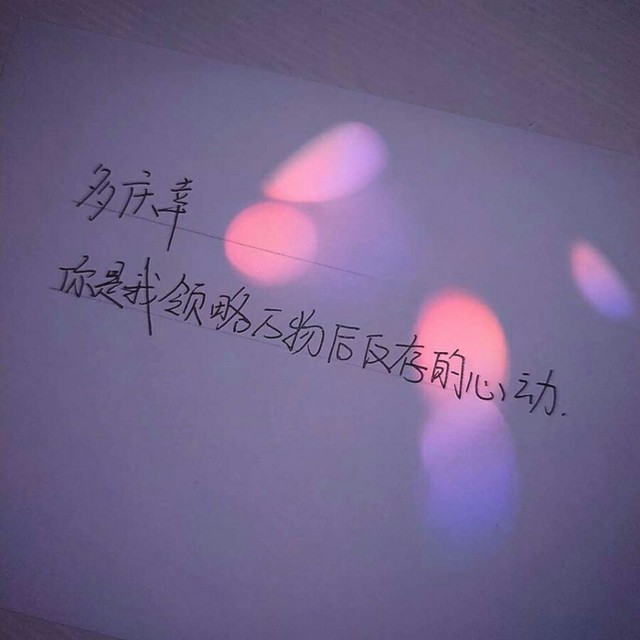 多庆幸
你是我领略万物后仅存的心动.